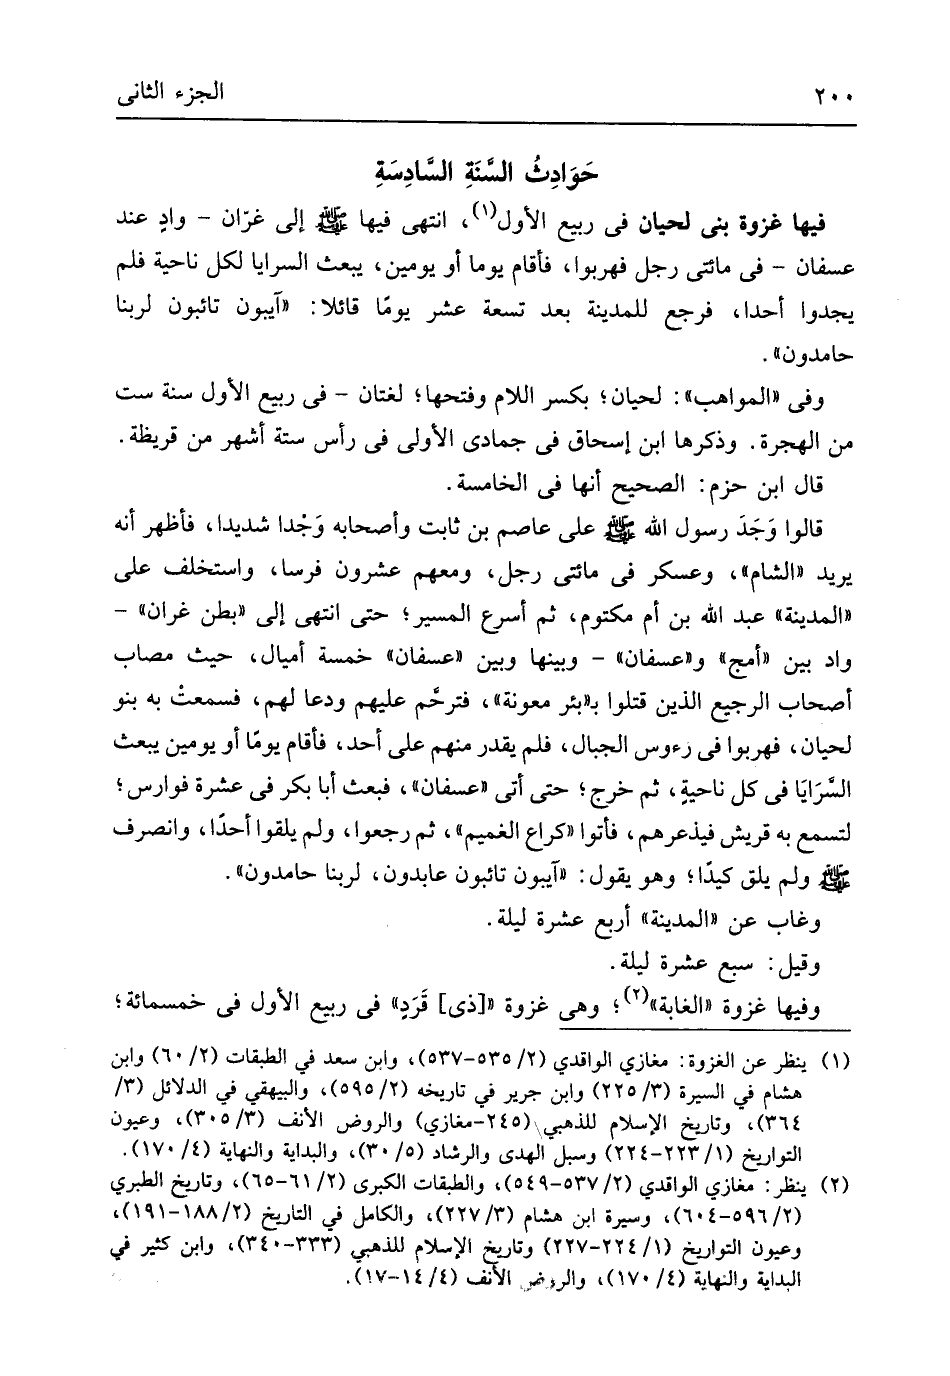 ٢٠٠ الجزء الثانى
حَوَادِثُ السَّنَةِ السَّادِسَةِ
فيها غزوة بنى لحيان فى ربيع الأول(١)، انتهى فيها ﷺ إلى غرّان – وادٍ عند
عسفان – فى مائتى رجل فهربوا، فأقام يوما أو يومين، يبعث السرايا لكل ناحية فلم
يجدوا أحدا، فرجع للمدينة بعد تسعة عشر يومًا قائلا: «آيبون تائبون لربنا
حامدون».
وفى «المواهب»: لحيان؛ بكسر اللام وفتحها؛ لغتان – فى ربيع الأول سنة ست
من الهجرة. وذكرها ابن إسحاق فى جمادى الأولى فى رأس ستة أشهر من قريظة.
قال ابن حزم: الصحيح أنها فى الخامسة.
قالوا وَجَدَ رسول الله ﷺ على عاصم بن ثابت وأصحابه وَجْدا شديدا، فأظهر أنه
يريد «الشام»، وعسكر فى مائتى رجل، ومعهم عشرون فرسا، واستخلف على
«المدينة» عبد الله بن أم مكتوم، ثم أسرع المسير؛ حتى انتهى إلى «بطن غران» –
واد بين «أمج» و«عسفان» – وبينها وبين «عسفان» خمسة أميال، حيث مصاب
أصحاب الرجيع الذين قتلوا بـ«بئر معونة»، فترحَّم عليهم ودعا لهم، فسمعتْ به بنو
لحيان، فهربوا فى رءوس الجبال، فلم يقدر منهم على أحد، فأقام يومًا أو يومين يبعث
السَّرَايَا فى كل ناحيةٍ، ثم خرج؛ حتى أتى «عسفان»، فبعث أبا بكر فى عشرة فوارس؛
لتسمع به قريش فيذعرهم، فأتوا «كراع الغميم»، ثم رجعوا، ولم يلقوا أحدًا، وانصرف
ﷺ ولم يلق كيدًا؛ وهو يقول: «آيبون تائبون عابدون، لربنا حامدون».
وغاب عن «المدينة» أربع عشرة ليلة.
وقيل: سبع عشرة ليلة.
وفيها غزوة «الغابة»(٢)؛ وهى غزوة «[ذى] قَرَدٍ» فى ربيع الأول فى خمسمائة؛
(١) ينظر عن الغزوة: مغازي الواقدي (٢/ ٥٣٥-٥٣٧)، وابن سعد في الطبقات (٢/ ٦٠) وابن
هشام في السيرة (٣/ ٢٢٥) وابن جرير في تاريخه (٢/ ٥٩٥)، والبيهقي في الدلائل (٣/
٣٦٤)، وتاريخ الإسلام للذهبي (٢٤٥-مغازي) والروض الأنف (٣/ ٣٠٥)، وعيون
التواريخ (١/ ٢٢٣-٢٢٤) وسبل الهدى والرشاد (٥/ ٣٠)، والبداية والنهاية (٤/ ١٧٠).
(٢) ينظر: مغازي الواقدي (٢/ ٥٣٧-٥٤٩)، والطبقات الكبرى (٢/ ٦١-٦٥)، وتاريخ الطبري
(٢/ ٥٩٦-٦٠٤)، وسيرة ابن هشام (٣/ ٢٢٧)، والكامل في التاريخ (٢/ ١٨٨-١٩١)،
وعيون التواريخ (١/ ٢٢٤-٢٢٧) وتاريخ الإسلام للذهبي (٣٣٣-٣٤٠)، وابن كثير في
البداية والنهاية (٤/ ١٧٠)، والروض الأنف (٤/ ١٤-١٧).